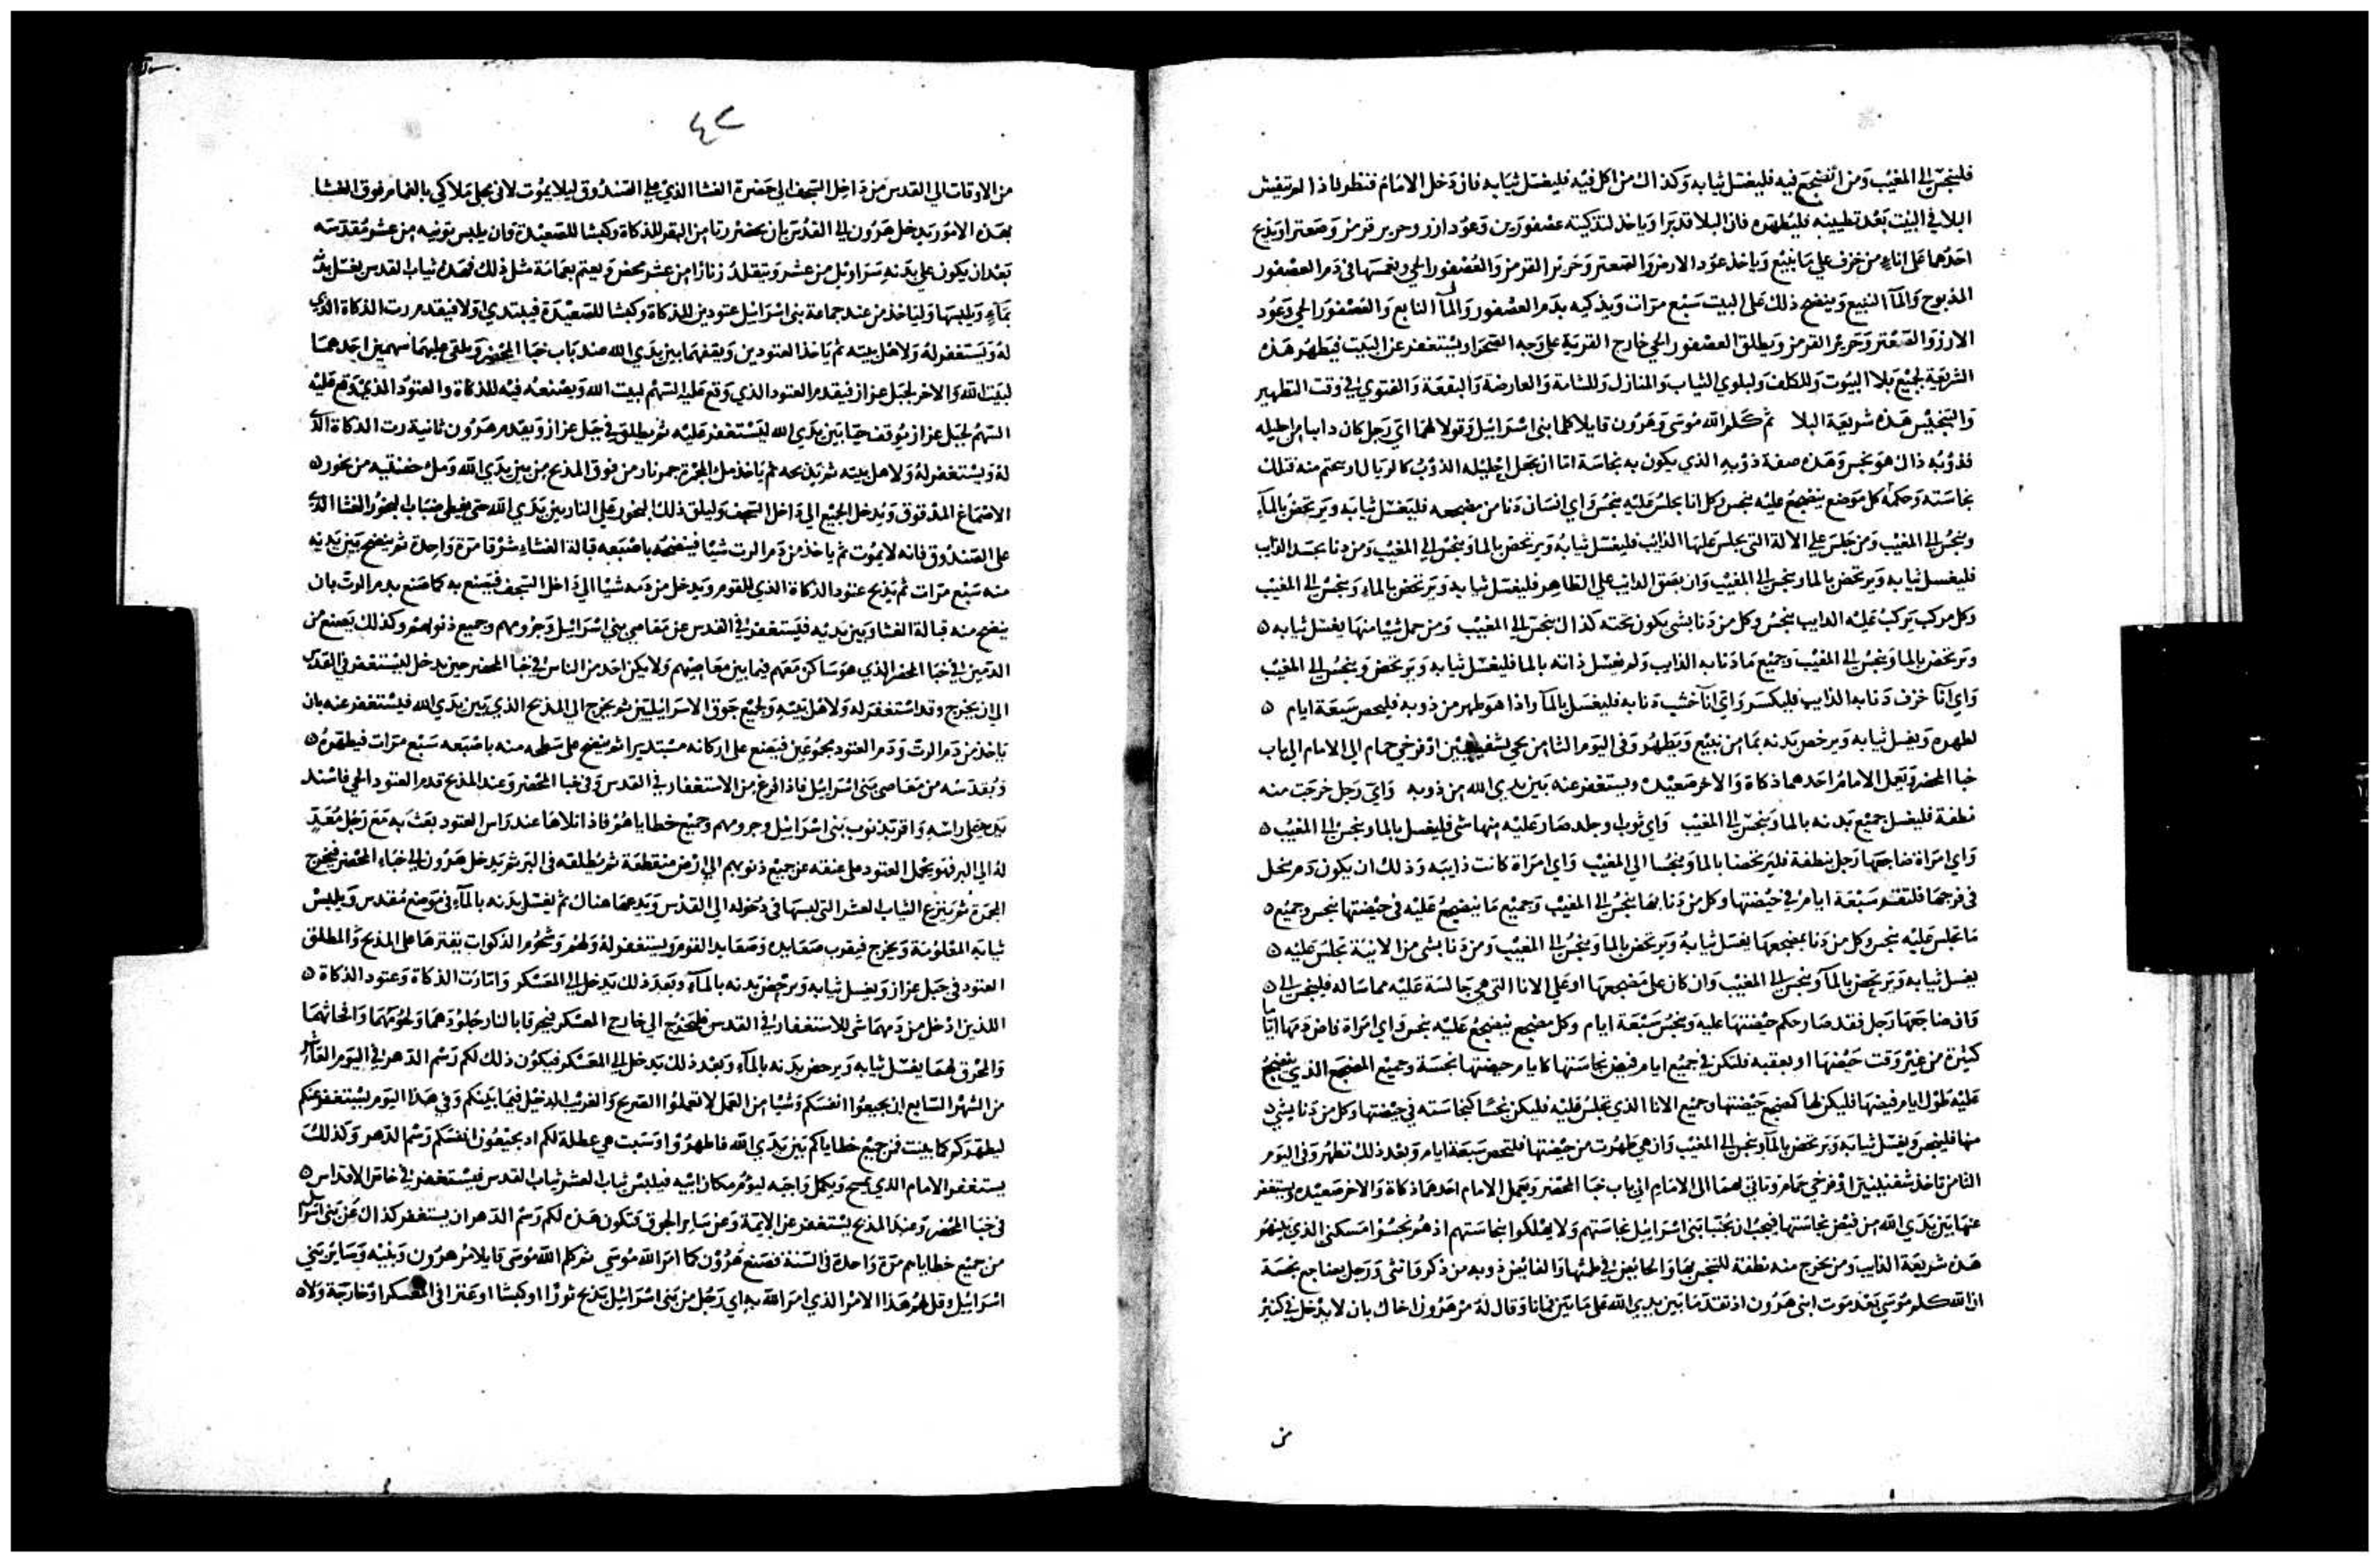 فلينجس الى المغيب ومن انضجع فيه فليغسل ثيابه وكذاك من اكل فيه فليغسل ثيابه فان دخل الامام فنظر فاذا لم تفش
البلا في البيت بعد تطيينه فليطهره فان البلا قد برا وياخذ لتذكيته عصفورين وعود ارز وحرير قرمز وصعتر ويذبح
احدهما على اناء من خزف على ما ينبع وياخذ عود الارز والصعتر وحرير القرمز والعصفور الحي ويغمسها في دم العصفور
المذبوح والماء النبيع وينضح ذلك على البيت سبع مرات ويذكيه بدم العصفور والماء النابع والعصفور الحي وعود
الارز والصعتر وحرير القرمز ويطلق العصفور الحي خارج القرية على وجه الصحرا ويستغفر عن البيت فيطهر هذه
الشريعة لجميع بلاا البيوت وللكلف ولبلوي الثياب والمنازل وللشامة والعارضة والبقعة والفتوي في وقت التطهير
والتنجيس هذه شريعة البلا ثم كلم الله موسى وهرون قايلا كلما بني اسرائيل وقولا لهما اي رجل كان دايبا من احليله
فذوبه ذاك هو نجس وهذه صفة ذوبه الذي يكون به نجاسة اما ان يجعل احليله الذوب كالريال او يختم منه فتلك
نجاسته وحكمه كل موضع ينضجع عليه ينجس وكل انا يجلس عليه ينجس واي انسان دنا من مضجعه فليغسل ثيابه ويرتحض بالماء
وينجس الى المغيب ومن جلس على الالة التي يجلس عليها الذايب فليغسل ثيابه ويرتحض بالما وينجس الى المغيب ومن دنا بجسد الذايب
فليغسل ثيابه ويرتحض بالما وينجس الى المغيب وان بصق الذايب على الطاهر فليغسل ثيابه ويرتحض بالماء وينجس الى المغيب
وكل مركب يركب عليه الدايب ينجس وكل من دنا بشي يكون تحته كذاك ينجس الى المغيب ومن حمل شيا منها يغسل ثيابه
ويرتحض بالما وينجس الى المغيب وجميع ما دنا به الذايب ولم يغسل ذاته بالما فليغسل ثيابه ويرتحض وينجس الى المغيب
واي انا خزف دنا به الذايب فليكسر واي انا خشب دنا به فليغسل بالماء واذا هو طهر من ذوبه فليحص سبعة ايام
لطهره ويغسل ثيابه ويرحض بدنه بما من نبيع ويطهر وفي اليوم الثامن يجي بشفنينين او فرخي حمام الى الامام الى باب
خبا المحضر ويعمل الامام احدهما ذكاة والاخر صعيدة ويستغفر عنه بين يدي الله من ذوبه واي رجل خرجت منه
نطفة فليغسل جميع بدنه بالما وينجس الى المغيب واي ثوب او جلد صار عليه منها شي فليغسل بالما وينجس الى المغيب
واي امراة ضاجعها رجل بنطفة فليرتحضا بالما وينجسا الى المغيب واي امراة كانت ذايبه وذلك ان يكون دم ينحل
في فرجها فلتقم سبعة ايام في حيضتها وكل من دنا بها ينجس الى المغيب وجميع ما ينضجع عليه في حيضتها ينجس وجميع
ما تجلس عليه ينجس وكل من دنا بمضجعها يغسل ثيابه ويرتحض بالما وينجس الى المغيب ومن دنا بشي من الانية تجلس عليه
يغسل ثيابه ويرتحض بالماء وينجس الى المغيب وان كان على مضجعها او على الانا التي هي جالسة عليه مماسا له فلينجس الى
وان ضاجعها رجل فقد صار حكم حيضتها عليه وينجس سبعة ايام وكل مضجع ينضجع عليه ينجس واي امراة فاض دمها اياما
كثيرة من غير وقت حيضها او بعقبه فلتكن في جميع ايام فيض نجاستها كايام حيضتها نجسة وجميع المضجع الذي ينضجع
عليه طول ايام فيضها فليكن لها كمضجع حيضتها وجميع الانا الذي تجلس عليه فليكن نجسا كنجاسته في حيضتها وكل من دنا بشي
منها فلينجس ويغسل ثيابه ويرتحض بالماء وينجس الى المغيب وان هي طهرت من حيضتها فلتحص سبعة ايام وبعد ذلك تطهر وفي اليوم
الثامن تاخذ شفنينين او فرخي حمام وتاتي بهما الى الامام الى باب خبا المحضر ويعمل الامام احدهما ذكاة والاخر صعيده ويستغفر
عنها بين يدي الله من فيض نجاستها فيجب ان يجتنبا بني اسرائيل نجاستهم ولا يهلكوا بنجاستهم اذ هم نجسوا مسكني الذي بينهم
هذه شريعة الذايب ومن يخرج منه نطفة للتنجس بها والحايض في طمثها والفايض ذوبه من ذكر وانثى ورجل يضاجع نجسة
ان الله كلم موسى بعد موت ابني هرون اذ تقدما بين يدي الله على ما بين فماتا وقال له مر هرون اخاك بان لا يدخل في كثير
من
٤٢
من الاوقات الى القدس من داخل السجف الى حضرة الغشا الذي على الصندوق ليلا يموت لاني بجلي ملاكي بالغمام فوق الغشا
بهذه الامور يدخل هرون الى القدس بان يحضر رتا من البقر للذكاة وكبشا للصعيدة وان يلبس تونيه من عشر مقدسه
بعد ان يكون على بدنه سراويل من عشر ويتقلد زنارا من عشر محض ويعتم بعمامة مثل ذلك فهذه ثياب القدس يغسل بدنه
بماء ويلبسها ولياخذ من عند جماعة بني اسرائيل عتودين للذكاة وكبشا للصعيدة فيبتدي اولا فيقدم رت الذكاة الذي
له ويستغفر له ولاهل بيته ثم ياخذ العتودين ويقفهما بين يدي الله عند باب خبا المحضر ويلقي عليهما سهمين احدهما
لبيت الله والاخر لجبل عزاز فيقدم العتود الذي وقع عليه السهم لبيت الله ويصنعه فيه للذكاة والعتود الذي وقع عليه
السهم لجبل عزاز يوقف حيا بين يدي الله ليستغفر عليه ثم يطلق في جبل عزاز ويقدم هرون ثانية رت الذكاة الذي
له ويستغفر له ولاهل بيته ثم يذبحه ثم ياخذ مل المجمرة جمر نار من فوق المذبح من بين يدي الله ومل حفنتيه من بخور
الاصماغ المدقوق ويدخل الجميع الى داخل السجف وليلق ذلك البخور على النار بين يدي الله حتى يغطي ضباب البخور الغشا الذي
على الصندوق فانه لا يموت ثم ياخذ من دم الرت شيا فينضحه باصبعه قبالة الغشاء شرقا مرة واحدة ثم ينضح بين يديه
منه سبع مرات ثم يذبح عتود الذكاة الذي للقوم ويدخل من دمه شيا الى داخل السجف فيصنع به كما صنع بدم الرت بان
ينضح منه قبالة الغشا وبين يديه فليستغفر في القدس عن معاصي بني اسرائيل وجرومهم وجميع ذنوبهم وكذلك يصنع من
الدمين في خبا المحضر الذي هو ساكن معهم فيما بين معاصيهم ولا يكن احد من الناس في خبا المحضر حين يدخل ليستغفر في القدس
الى ان يخرج وقد استغفر له ولاهل بيته ولجميع جوق الاسرائيليين ثم يخرج الى المذبح الذي بين يدي الله فيستغفر عنه بان
ياخذ من دم الرت ودم العتود مجموعين فيضع على اركانه مستديرا ثم ينضح على سطحه منه باصبعه سبع مرات فيطهره
ويقدسه من معاصي بني اسرائيل فاذا فرغ من الاستغفار في القدس وفي خبا المحضر وعند المذبح قدم العتود الحي فاسند
يديه على راسه واقر بذنوب بني اسرائيل وجرومهم وجميع خطاياهم فاذا تلاها عند راس العتود بعث به مع رجل معد
له الى البر فهو يحمل العتود على عنقه عن جميع ذنوبهم الى ارض منقطعة ثم يطلقه في البر ثم يدخل هرون الى خباء المحضر فيخرج
المجمرة ثم ينزع الثياب العشر التي لبسها في دخوله الى القدس ويدعها هناك ثم يغسل بدنه بالماء في موضع مقدس ويلبس
ثيابه المعلومة ويخرج فيقرب صعايده وصعايد القوم ويستغفر له ولهم وشحوم الذكوات يقترها على المذبح والمطلق
العتود في جبل عزاز ويغسل ثيابه ويرحض بدنه بالماء وبعد ذلك يدخل الى المعسكر واما رت الذكاة وعتود الذكاة
اللذين ادخل من دمهما شي للاستغفار في القدس فليخرج الى خارج المعسكر فيحرقا بالنار جلودهما ولحومهما وانحاثهما
والمحرق لهما يغسل ثيابه ويرحض بدنه بالماء وبعد ذلك يدخل الى المعسكر فيكون ذلك لكم رسم الدهر في اليوم العاشر
من الشهر السابع ان يجيعوا انفسكم وشيا من العمل لا تعملوا الصريح والغريب الدخيل فيما بينكم وفي هذا اليوم يستغفر عنكم
ليطهركم كما بينت فمن جميع خطاياكم بين يدي الله فاطهروا وسبت هي عطلة لكم اذ يجيعون انفسكم رسم الدهر وكذلك
يستغفر الامام الذي يمسح ويكمل واجبه ليؤم مكان ابيه فيلبس ثياب العشر ثياب القدس فيستغفر في خاص الاقداس
في خبا المحضر وعند المذبح يستغفر عن الايمة وعن ساير الجوق فتكون هذه لكم رسم الدهر ان يستغفر كذاك عن بني اسرائيل
من جميع خطاياهم مرة واحدة في السنة فصنع هرون كما امر الله موسى ثم كلم الله موسى قايلا مر هرون وبنيه وساير بني
اسرائيل وقل لهم هذا الامر الذي امر الله به اي رجل من بني اسرائيل يذبح ثورا او كبشا او عنزا في المعسكر او خارجة ولا